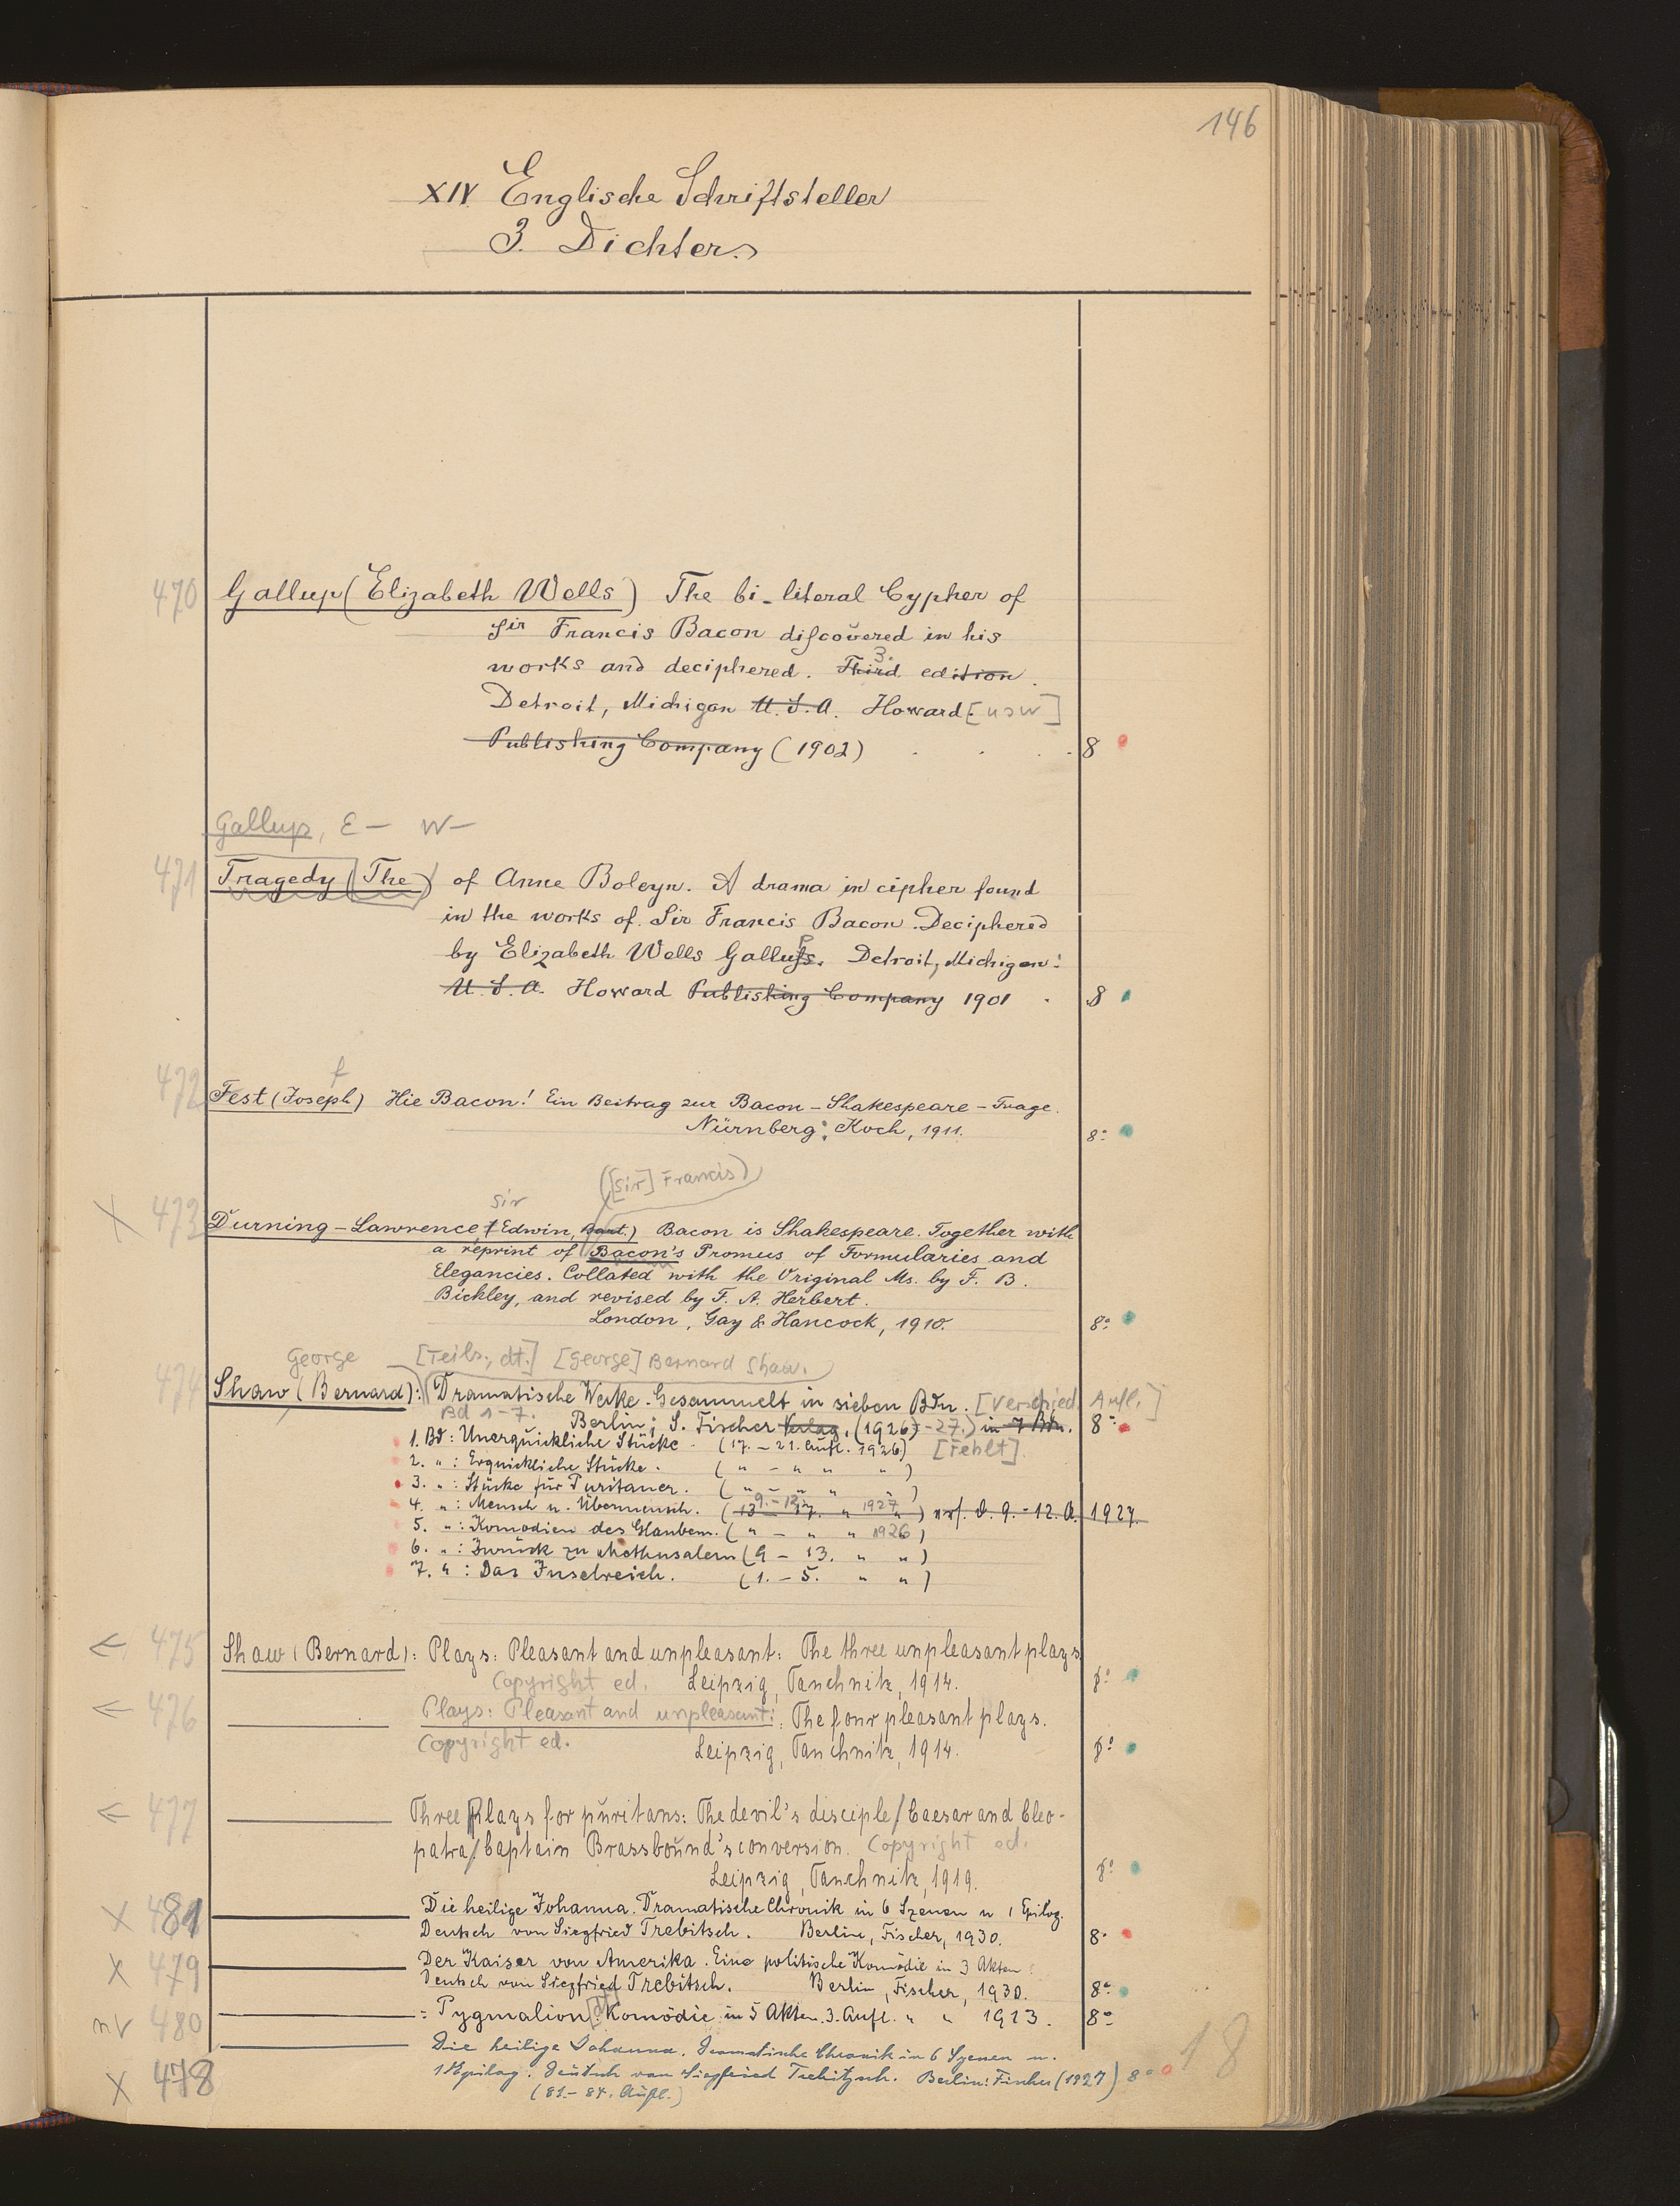 146
XIV. Englische Schriftsteller
3. Dichter.
470 Gallup (Elizabeth Wells) The bi-literal Cypher of
Sir Francis Bacon discovered in his
works and deciphered. Third 3. edition.
Detroit, Michigan U.S.A. Howard [usw]
Publishing Company (1902) . . . 8
Gallup, E— W—
471 Tragedy (The) of Anne Boleyn. A drama in cipher found
in the works of Sir Francis Bacon. Deciphered
by Elizabeth Wells Gallup. Detroit, Michigan:
U.S.A. Howard Publishing Company 1901 . 8
472 Fest (Joseph) Hie Bacon! Ein Beitrag zur Bacon-Shakespeare-Frage.
f
Nürnberg: Koch, 1911. 8°
([Sir] Francis)
Sir
X 473 Durning-Lawrence, (Edwin, Bart.) Bacon is Shakespeare. Together with
a reprint of Bacon's Promus of Formularies and
Elegancies. Collated with the Original Ms. by F. B.
Bickley, and revised by F. A. Herbert.
London, Gay & Hancock, 1910. 8°
George [Teils., dt.] [George] Bernard Shaw.
474 Shaw (Bernard): Dramatische Werke. Gesammelt in sieben Bdn. [Verschied. Aufl.]
Bd 1-7. Berlin: S. Fischer Verlag, (1926)-27.) in 7 Bdn. 8°
1. Bd: Unerquickliche Stücke. (17.-21. Aufl. 1926) [Fehlt]
2. " : Erquickliche Stücke. ( " - " " " )
3. " : Stücke für Puritaner. ( " - " " " )
4. " : Mensch u. Übermensch. (13 - 17. 9.-12. " 1927 " ) 9.-12. A. 1927.
5. " : Komödien des Glaubens. ( " - " " 1926 )
6. " : Zurück zu Methusalem (9 - 13. " " )
7. " : Das Inselreich. (1. - 5. " " )
← 475 Shaw (Bernard): Plays: Pleasant and unpleasant: The three unpleasant plays
Copyright ed. Leipzig, Tauchnitz, 1914. 8°
← 476 ——— Plays: Pleasant and unpleasant: The four pleasant plays.
Copyright ed. Leipzig, Tauchnitz, 1914. 8°
← 477 ——— Three Plays for puritans: The devil's disciple/Caesar and Cleo-
patra/Captain Brassbound's conversion. Copyright ed.
Leipzig, Tauchnitz, 1919. 8°
X 481 ——— Die heilige Johanna. Dramatische Chronik in 6 Szenen u 1 Epilog.
Deutsch von Siegfried Trebitsch. Berlin, Fischer, 1930. 8°
X 479 ——— Der Kaiser von Amerika. Eine politische Komödie in 3 Akten.
Deutsch von Siegfried Trebitsch. Berlin, Fischer, 1930. 8°
nv 480 ——— : Pygmalion [dt] Komödie in 5 Akten. 3. Aufl. " " 1913. 8°
——— Die heilige Johanna. Dramatische Chronik in 6 Szenen u.
X 478 1 Epilog. Deutsch von Siegfried Trebitsch. Berlin: Fischer (1927) 8°
(81.-84. Aufl.)
18